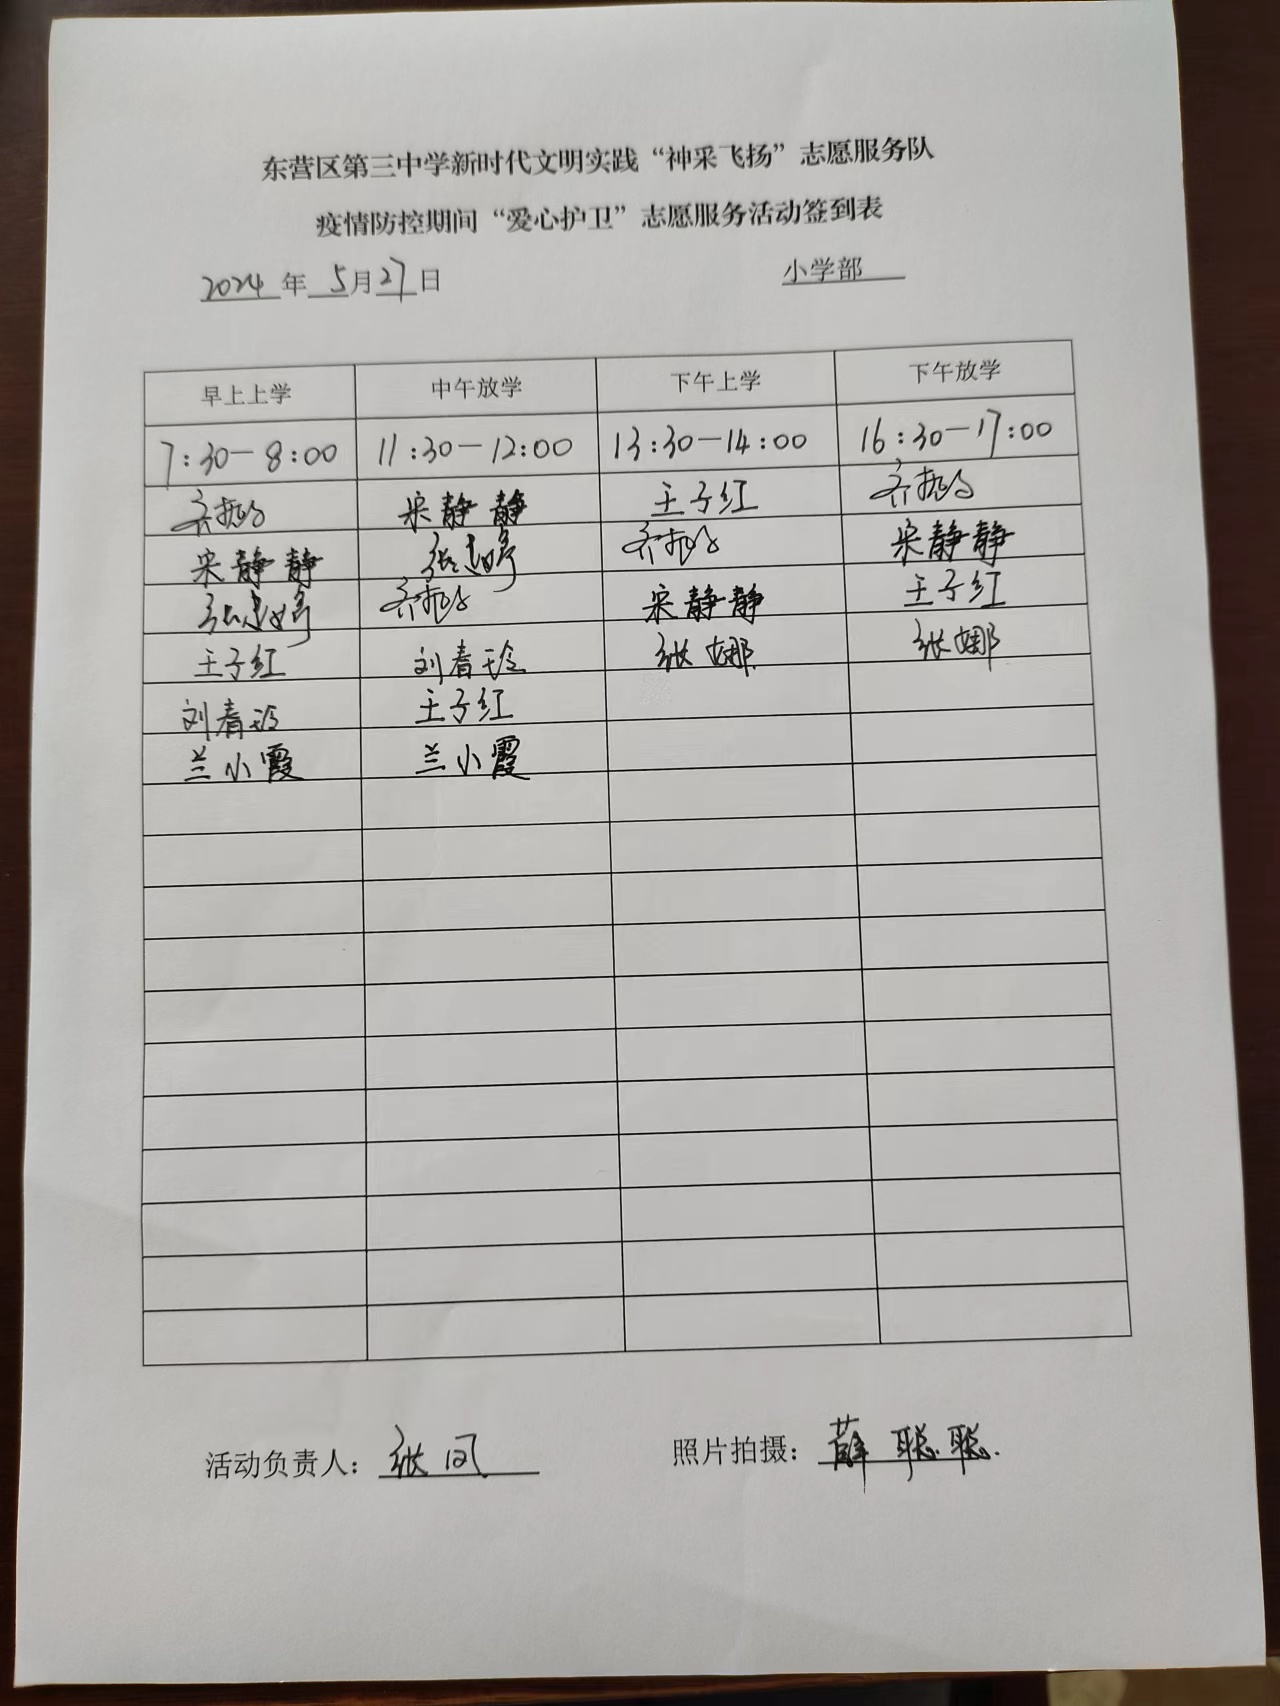 东营区第三中学新时代文明实践“神采飞扬”志愿服务队
疫情防控期间“爱心护卫”志愿服务活动签到表
2024年5月27日 小学部
早上上学 中午放学 下午上学 下午放学
7:30-8:00 11:30-12:00 13:30-14:00 16:30-17:00
宋静静 王子红
宋静静 宋静静
宋静静 王子红
王子红 刘春玲 张娜 张娜
刘春玲 王子红
兰小霞 兰小霞
活动负责人：张凤 照片拍摄：薛聪聪.